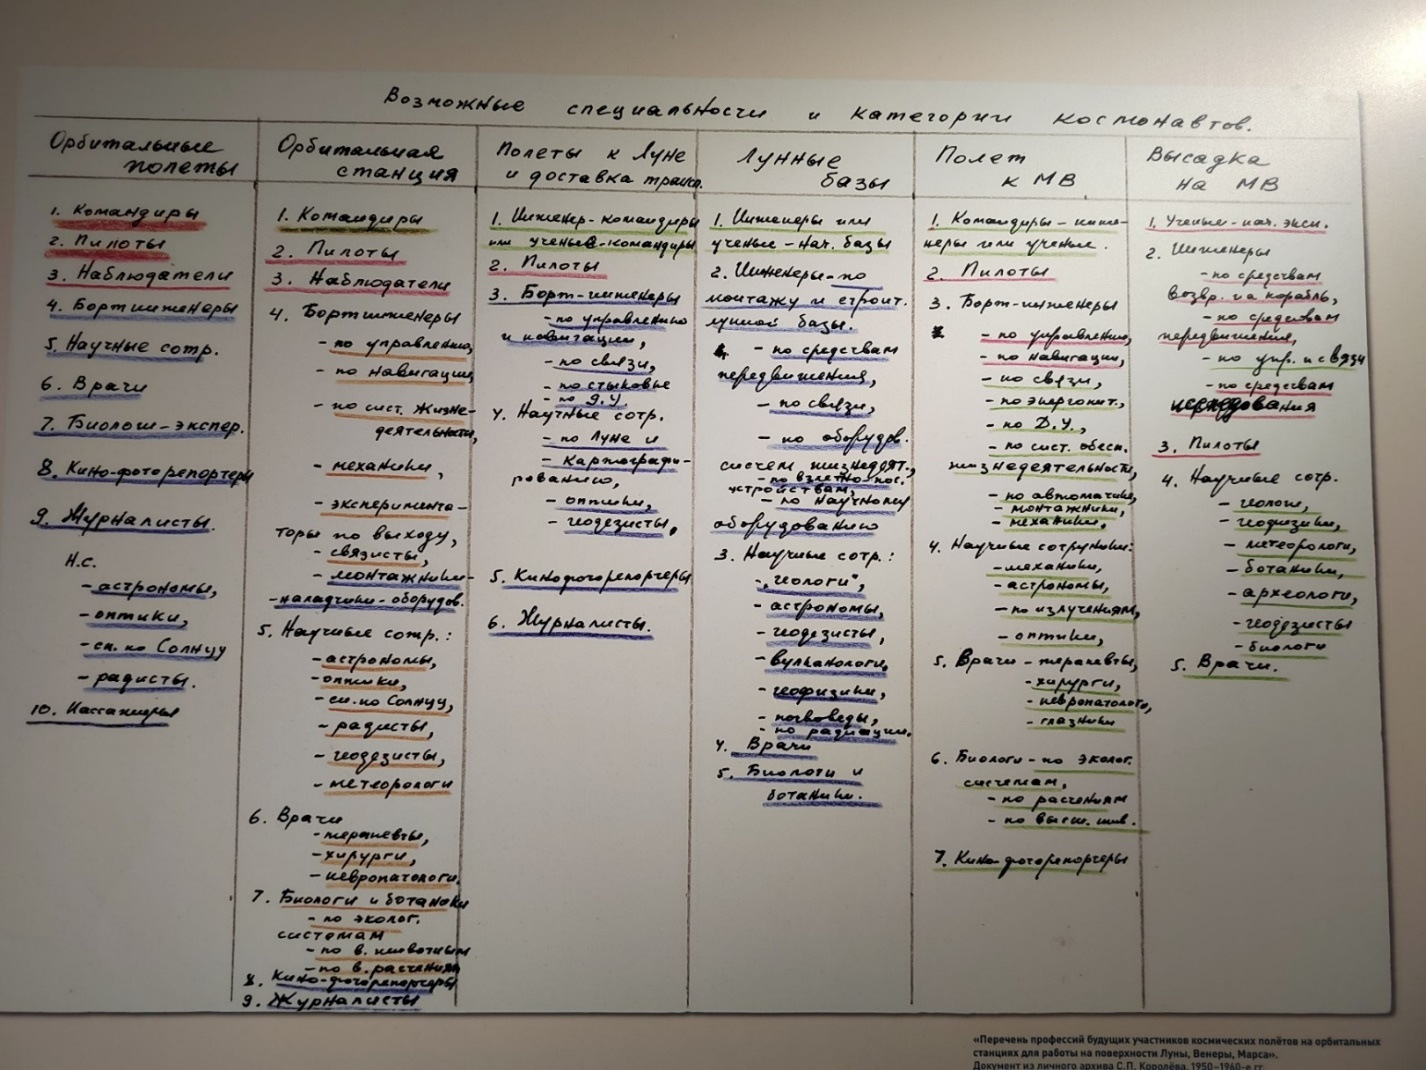 Возможные специальности и категории космонавтов.
Орбитальные
полеты
1. Командиры
2. Пилоты
3. Наблюдатели
4. Бортинженеры
5. Научные сотр.
6. Врачи
7. Биологи-экспер.
8. Кино-фоторепортеры
9. Журналисты.
Н.С.
- астрономы,
- оптики,
- сп. по Солнцу
- радисты.
10. Пассажиры
Орбитальная
станция
1. Командиры
2. Пилоты
3. Наблюдатели
4. Бортинженеры
- по управлению,
- по навигации,
- по сист. жизне-
деятельности,
- механики,
- экспериментa-
торы по выходу,
- связисты,
- монтажники-
-наладчики-оборудов.
5. Научные сотр.:
- астрономы,
- оптики,
- сп. по Солнцу,
- радисты,
- геодезисты,
- метеорологи
6. Врачи
- терапевты,
- хирурги,
- невропатологи.
7. Биологи и ботаники
- по эколог.
системам
- по в. животным
- по в. растениям
8. Кино-фоторепортеры
9. Журналисты
Полеты к Луне
и доставка трансп.
1. Инженер-командиры
или ученые-командиры
2. Пилоты
3. Борт-инженеры
- по управлению
и навигации,
- по связи,
- по стыковке
- по Д.У.
4. Научные сотр.
- по Луне и
- картографи-
рованию,
- оптики,
- геодезисты,
5. Кинофоторепортеры
6. Журналисты.
Лунные
базы
1. Инженеры или
ученые - нач. базы
2. Инженеры - по
монтажу и строит.
лунной базы.
- по средствам
передвижения,
- по связи,
- по оборудов.
систем жизнедеят.,
- по взлетно-пос.
устройствам,
- по научному
оборудованию
3. Научные сотр.:
- „геологи",
- астрономы,
- геодезисты,
- вулканологи,
- геофизики,
- почвоведы,
- по радиации.
4. Врачи
5. Биологи и
ботаники.
Полет
к МВ
1. Командиры - инже-
неры или ученые.
2. Пилоты
3. Борт-инженеры
- по управлению,
- по навигации,
- по связи,
- по энергопит.,
- по Д.У.,
- по сист. обесп.
жизнедеятельности,
- по автоматике,
- монтажники,
- механики,
4. Научные сотрудники:
- механики,
- астрономы,
- по излучениям,
- оптики,
5. Врачи - терапевты,
- хирурги,
- невропатологи,
- глазники
6. Биологи - по эколог.
системам,
- по растениям
- по высш. жив.
7. Кино-фоторепортеры
Высадка
на МВ
1. Ученые - нач. эксп.
2. Инженеры
- по средствам
возвр. на корабль,
- по средствам
передвижения,
- по упр. и связи
- по средствам
исследования
3. Пилоты
4. Научные сотр.
- геологи,
- геофизики,
- метеорологи,
- ботаники,
- археологи,
- геодезисты
- биологи
5. Врачи.
«Перечень профессий будущих участников космических полётов на орбитальных
станциях для работы на поверхности Луны, Венеры, Марса».
Документ из личного архива С.П. Королёва. 1950–1960-е гг.